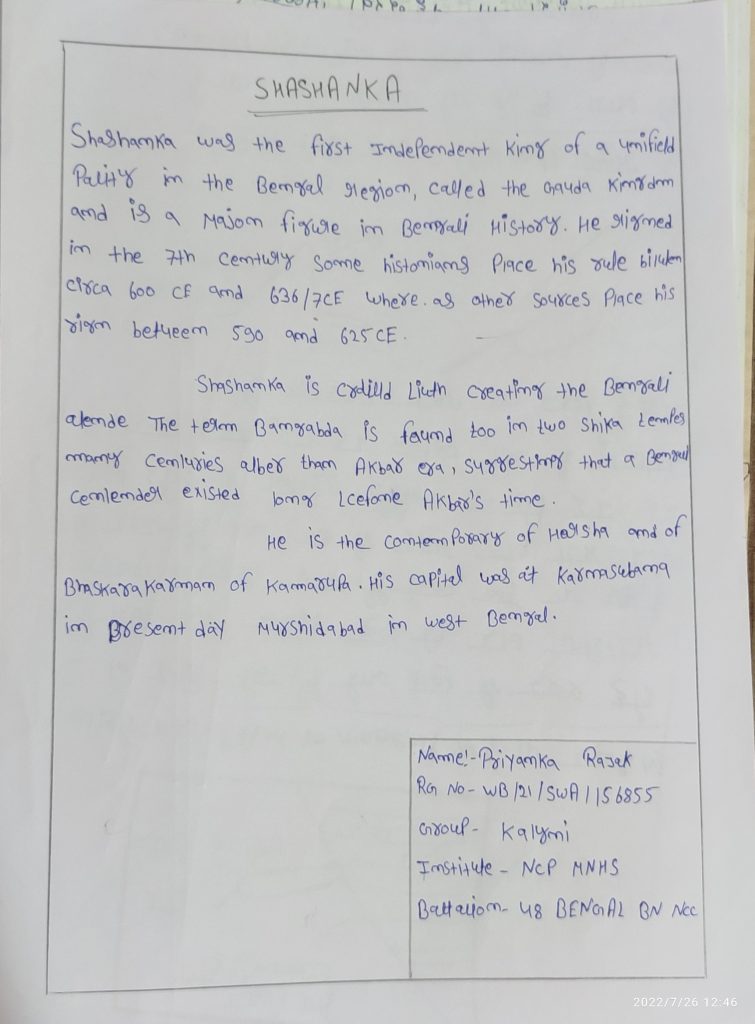 SHASHANKA
Shashamka was the first Independent King of a unifield
Pality in the Bengal region, called the Gauda Kingdom
and is a Majon figure in Bengali History. He rigned
in the 7th Century Some historians Place his rule
circa 600 CE and 636/7CE where. as other Sources Place his
rign between 590 and 625 CE.
Shashamka is creating the Bengali
The term Bangabda is found too in two Shika
many Centuries than Akbar era, suggesting that a Bengal
existed long Akbar's time.
He is the contemporary of Harsha and of
Bhaskarakarman of Kamarupa. His capital was at Karnasubana
in Present day Murshidabad in west Bengal.
Name:- Priyanka Rajak
RG No - WB/21/SWA/156855
Group - Kalyni
Institute - NCP MNHS
Battalion - 48 BENGAL BN NCC
2022/7/26 12:46